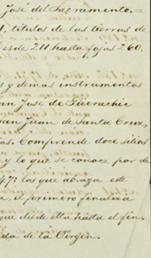 José del Sacramento. =
títulos de las tierras de
esde 211 hasta fojas 260.
y demas instrumentos
an José de
an Juan, de Santa Cruz,
as. Comprende dos sitios
y lo que se conoce por de
671 los que abraza este
el primero finaliza
que de esta hasta el fin
de la Virgen